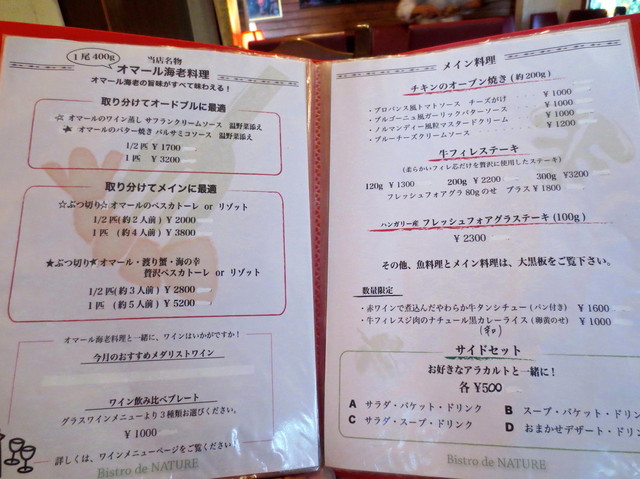 1尾400g
当店名物
オマール海老料理
オマール海老の旨味がすべて味わえる!
取り分けてオードブルに最適
☆オマールのワイン蒸し サフランクリームソース 温野菜添え
★オマールのバター焼き バルサミコソース 温野菜添え
1/2匹 ¥1700
1匹 ¥3200
取り分けてメインに最適
☆ぶつ切り☆オマールのペスカトーレ or リゾット
1/2匹(約2人前) ¥2000
1匹 (約4人前) ¥3800
★ぶつ切り★オマール・渡り蟹・海の幸
贅沢ペスカトーレ or リゾット
1/2匹(約3人前) ¥2800
1匹 (約5人前) ¥5200
オマール海老料理と一緒に、ワインはいかがですか!
今月のおすすめメダリストワイン
ワイン飲み比べプレート
グラスワインメニューより3種類お選びください。
¥1000
詳しくは、ワインメニューページをご覧ください!
Bistro de NATURE
メイン料理
チキンのオーブン焼き(約200g)
・プロバンス風トマトソース チーズがけ ¥1000
・ブルゴーニュ風ガーリックバターソース ¥1000
・ノルマンディー風粒マスタードクリーム ¥1000
・ブルーチーズクリームソース ¥1200
牛フィレステーキ
(柔らかいフィレ芯だけを贅沢に使用したステーキ)
120g ¥1300 200g ¥2200 300g ¥3200
フレッシュフォアグラ80gのせ プラス¥1800
ハンガリー産 フレッシュフォアグラステーキ(100g)
¥2300
その他、魚料理とメイン料理は、大黒板をご覧下さい。
数量限定
・赤ワインで煮込んだやわらか牛タンシチュー(パン付き) ¥1600
・牛フィレスジ肉のナチュール黒カレーライス(卵黄のせ) ¥1000
(辛口)
サイドセット
お好きなアラカルトと一緒に!
各¥500
A サラダ・バケット・ドリンク
B スープ・バケット・ドリン
C サラダ・スープ・ドリンク
D おまかせデザート・ドリン
Bistro de NATURE